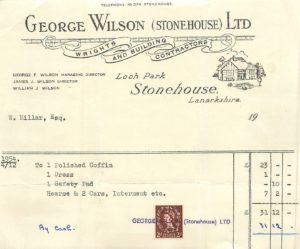 TELEPHONE: STONEHOUSE
GEORGE WILSON (STONEHOUSE) LTD
WRIGHTS AND BUILDING CONTRACTORS
GEORGE F. WILSON MANAGING DIRECTOR
JAMES J. WILSON DIRECTOR
WILLIAM J. WILSON
Loch Park
Stonehouse,
Lanarkshire.
W. Millar, Esq. 19
1954
4/12 To 1 Polished Coffin 23 - -
1 Dress 1 - -
1 Safety Pad - 10 -
Hearse & 2 Cars, Interment etc. 7 2 -
GEORGE (Stonehouse) LTD 31 12 -
By Cash. 31 12 -